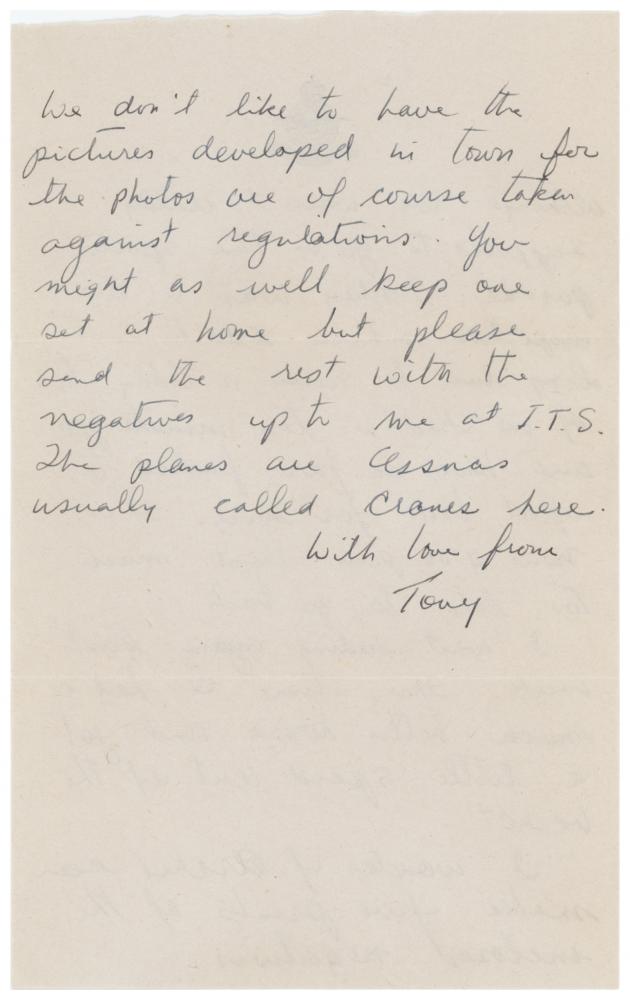 We don't like to have the
pictures developed in town for
the photos are of course taken
against regulations. You
might as well keep one
set at home but please
send the rest with the
negatives up to me at I.T.S.
The planes are Cessnas
usually called Cranes here.
With love from
Tony